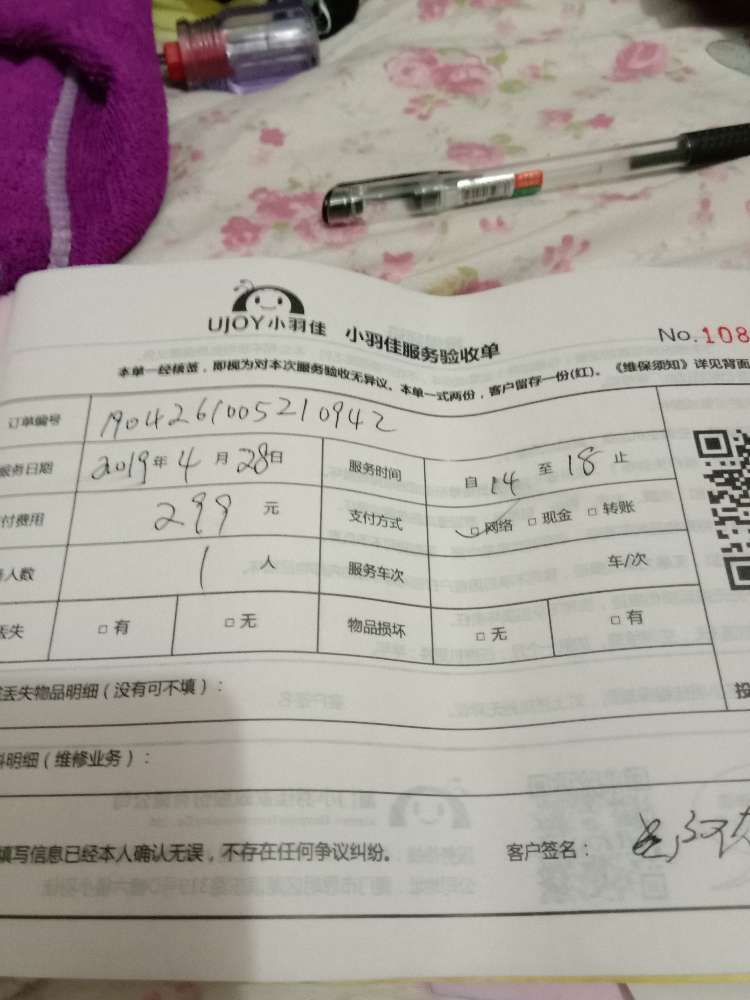 UJOY小羽佳 小羽佳服务验收单
No.108
本单一经核签，即视为对本次服务验收无异议、本单一式两份，客户留存一份(红)。《维保须知》详见背面
订单编号 1904261005210942
服务日期 2019年4月28日 服务时间 自14至18止
付费用 299元 支付方式 □网络 □现金 □转账
人数 1人 服务车次 车/次
丢失 □有 □无 物品损坏 □无 □有
丢失物品明细（没有可不填）：
投
料明细（维修业务）：
填写信息已经本人确认无误，不存在任何争议纠纷。 客户签名：